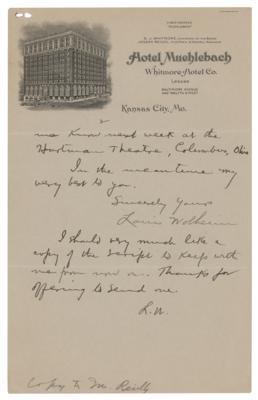 Hotel Muehlebach
Whitmore Hotel Co.
Lessee
Baltimore Avenue
and Twelfth Street
Kansas City, Mo.
me know next week at the
Hartman Theatre, Columbus, Ohio
In the meantime my
very best to you.
Sincerely Yours
Louis Wolheim
I should very much like a
copy of the script to keep with
me from now on. Thanks for
offering to send one.
L.W.
Copy to Mr. Reilly